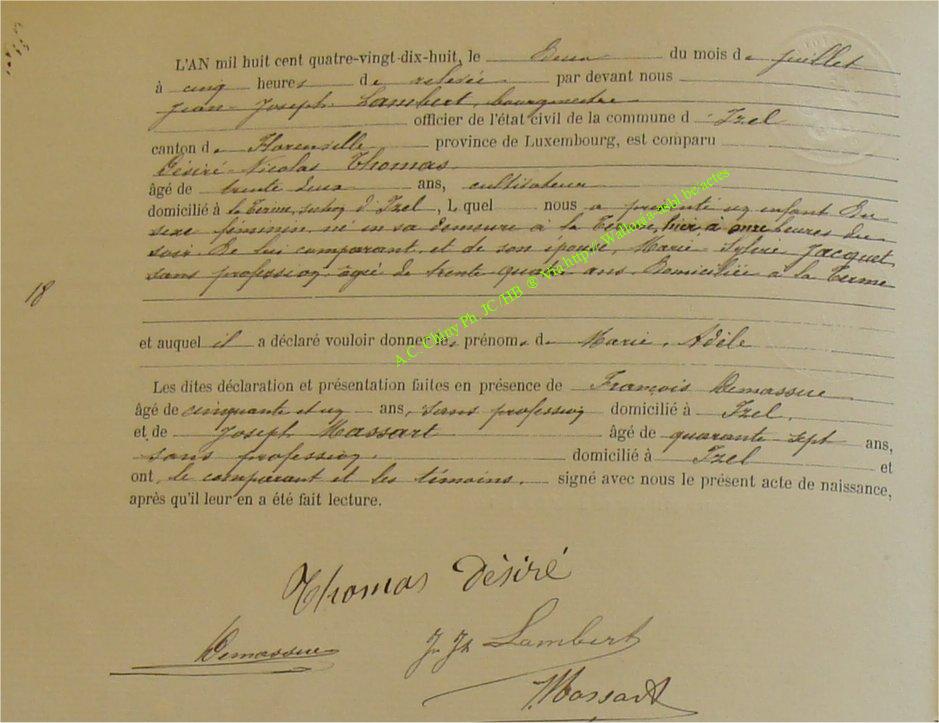 L'AN mil huit cent quatre-vingt-dix-huit, le deux du mois de juillet
à cinq heures de relevée par devant nous
Jean-Joseph Lambert, bourgmestre
officier de l'état civil de la commune d'Izel
canton de Florenville province de Luxembourg, est comparu
Désiré-Nicolas Thomas
âgé de trente deux ans, cultivateur
domicilié à la Terme, section d'Izel, Lequel nous a présenté un enfant du
sexe féminin, né en sa demeure à la Terme, hier, à onze heures du
soir de lui comparant, et de son épouse, Marie-Sylvie Jacquet,
sans profession, âgée de trente quatre ans domiciliée à la Terme
18
et auquel il a déclaré vouloir donner les prénoms de Marie, Adèle
Les dites déclaration et présentation faites en présence de François Demassue
âgé de cinquante et un ans, sans profession domicilié à Izel,
et de Joseph Massart âgé de quarante-sept ans,
sans profession, domicilié à Izel et
ont, le comparant et les témoins, signé avec nous le présent acte de naissance,
après qu'il leur en a été fait lecture.
Thomas Désiré
Demassue J. Jh Lambert
J. Massart
A.C. Chiny Ph. JC/HB ® Via http://Wallonia-asbl.be/actes